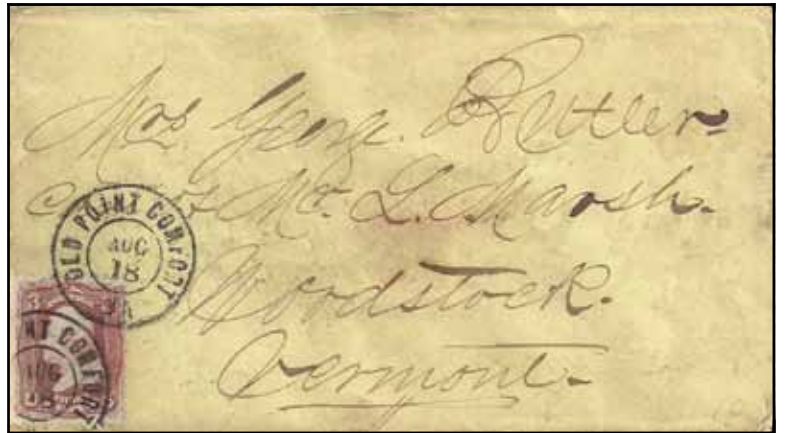 Mrs. George. Rettler
Mr. L. Marsh.
Woodstock.
Vermont.
OLD POINT COMFORT
AUG
18
VA
3
NT COMFORT
AUG
18